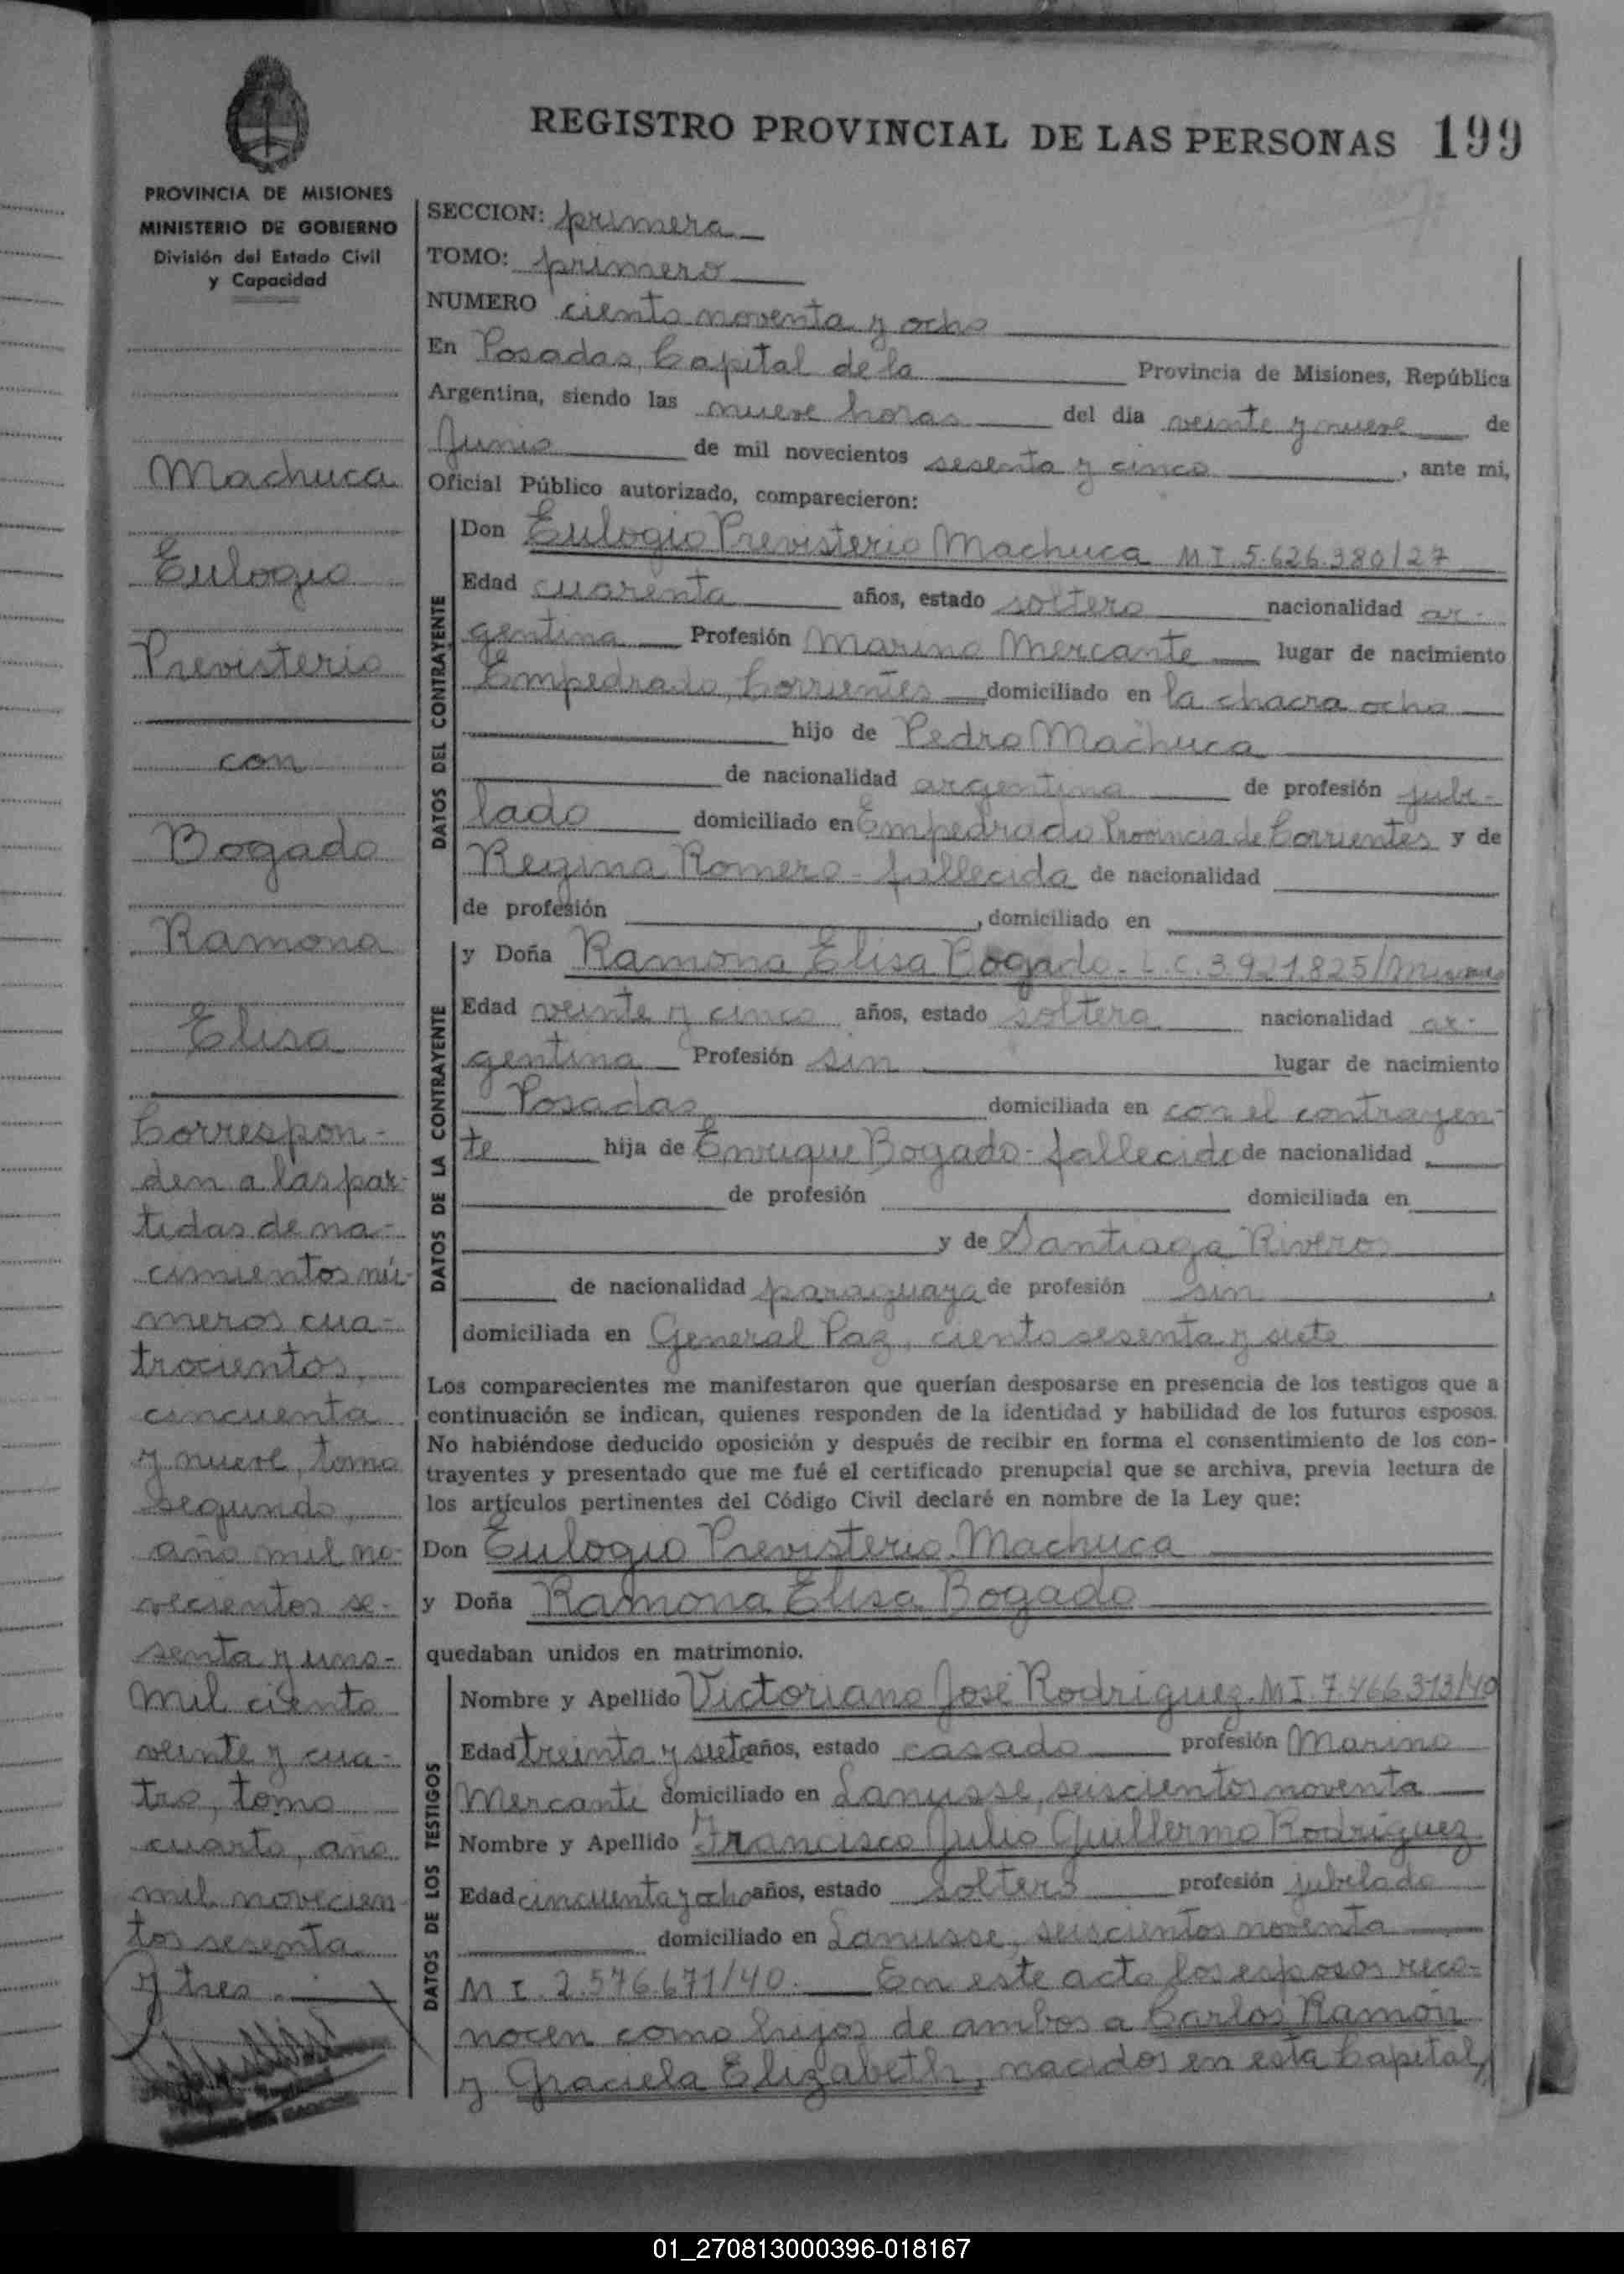 REGISTRO PROVINCIAL DE LAS PERSONAS 199
PROVINCIA DE MISIONES
MINISTERIO DE GOBIERNO
División del Estado Civil
y Capacidad
Machuca
Eulogio
Previsterio
con
Bogado
Ramona
Elisa
Correspon-
den a las par-
tidas de na-
cimientos nú-
meros cua-
trocientos
cincuenta
y nueve, tomo
segundo,
año mil no-
vecientos se-
senta y uno-
mil ciento
veinte y cua-
tro, tomo
cuarto, año
mil novecien-
tos sesenta
y tres.
SECCION: primera
TOMO: primero
NUMERO ciento noventa y ocho
En Posadas, Capital de la Provincia de Misiones, República
Argentina, siendo las nueve horas del día veinte y nueve de
Junio de mil novecientos sesenta y cinco, ante mi,
Oficial Público autorizado, comparecieron:
DATOS DEL CONTRAYENTE
Don Eulogio Previsterio Machuca M I. 5.626.380/27
Edad cuarenta años, estado soltero nacionalidad ar-
gentina Profesión Marino Mercante lugar de nacimiento
Empedrado, Corrientes domiciliado en la chacra ocho
hijo de Pedro Machuca
de nacionalidad argentina de profesión jubi-
lado domiciliado en Empedrado Provincia de Corrientes y de
Regina Romero - fallecida de nacionalidad
de profesión , domiciliado en
DATOS DE LA CONTRAYENTE
y Doña Ramona Elisa Bogado - L.C. 3.921.825/Misiones
Edad veinte y cinco años, estado soltera nacionalidad ar-
gentina Profesión sin lugar de nacimiento
Posadas domiciliada en con el contrayen-
te hija de Enrique Bogado - fallecido de nacionalidad
de profesión domiciliada en
y de Santiaga Riveros
de nacionalidad paraguaya de profesión sin ,
domiciliada en General Paz, ciento sesenta y siete
Los comparecientes me manifestaron que querían desposarse en presencia de los testigos que a
continuación se indican, quienes responden de la identidad y habilidad de los futuros esposos.
No habiéndose deducido oposición y después de recibir en forma el consentimiento de los con-
trayentes y presentado que me fué el certificado prenupcial que se archiva, previa lectura de
los artículos pertinentes del Código Civil declaré en nombre de la Ley que:
Don Eulogio Previsterio Machuca
y Doña Ramona Elisa Bogado
quedaban unidos en matrimonio.
DATOS DE LOS TESTIGOS
Nombre y Apellido Victoriano José Rodriguez. M I. 7.466.373/40
Edad treinta y siete años, estado casado profesión Marino
Mercante domiciliado en Lanusse, seiscientos noventa
Nombre y Apellido Francisco Julio Guillermo Rodriguez
Edad cincuenta y ocho años, estado soltero profesión jubilado
domiciliado en Lanusse, seiscientos noventa
M I. 2.576.671/40. En este acto los esposos reco-
nocen como hijos de ambos a Carlos Ramón
y Graciela Elizabeth, nacidos en esta Capital,
01_270813000396-018167